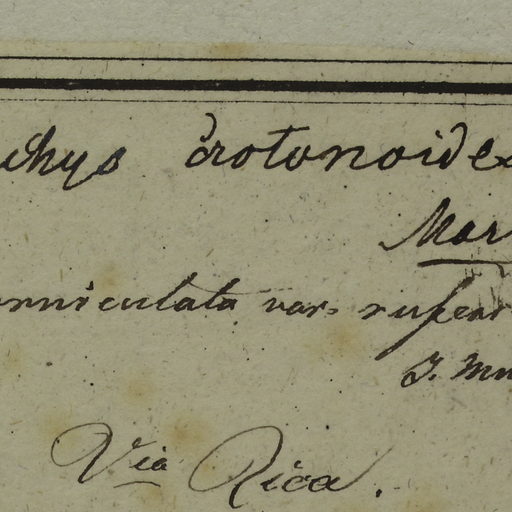 chys crotonoides
Mar
nniculata var. rupest
J. Mu
Via Rica.